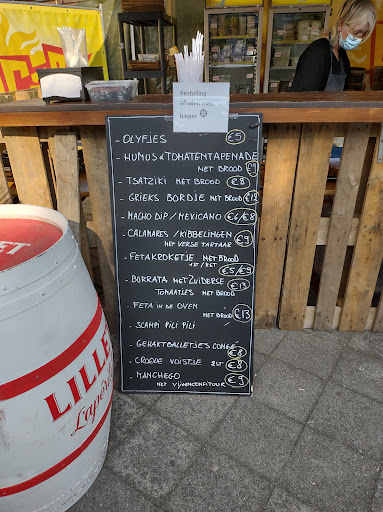 Bestelling
afhalen met
bieper
- OLYFJES €5
- HUMUS & TOMATENTAPENADE
MET BROOD €9
- TSATZIKI MET BROOD €8
- GRIEKS BORDJE MET BROOD €12
- NACHO DIP / MEXICANO €6/€8
- CALAMARES / KIBBELINGEN
MET VERSE TARTAAR €9
- FETAKROKETJE MET BROOD
1ST / 2ST €5/€9
- BURRATA MET ZUIDERSE €13
TOMAATJES MET BROOD
- FETA IN DE OVEN
MET BROOD €13
- SCAMPI PILI PILI
- GEHAKTBALLETJES CONGÉ €8
- CROQUE VOISTJE 2ST €8
- MANCHEGO
MET VIJGENCONFITUUR €9
LILLET